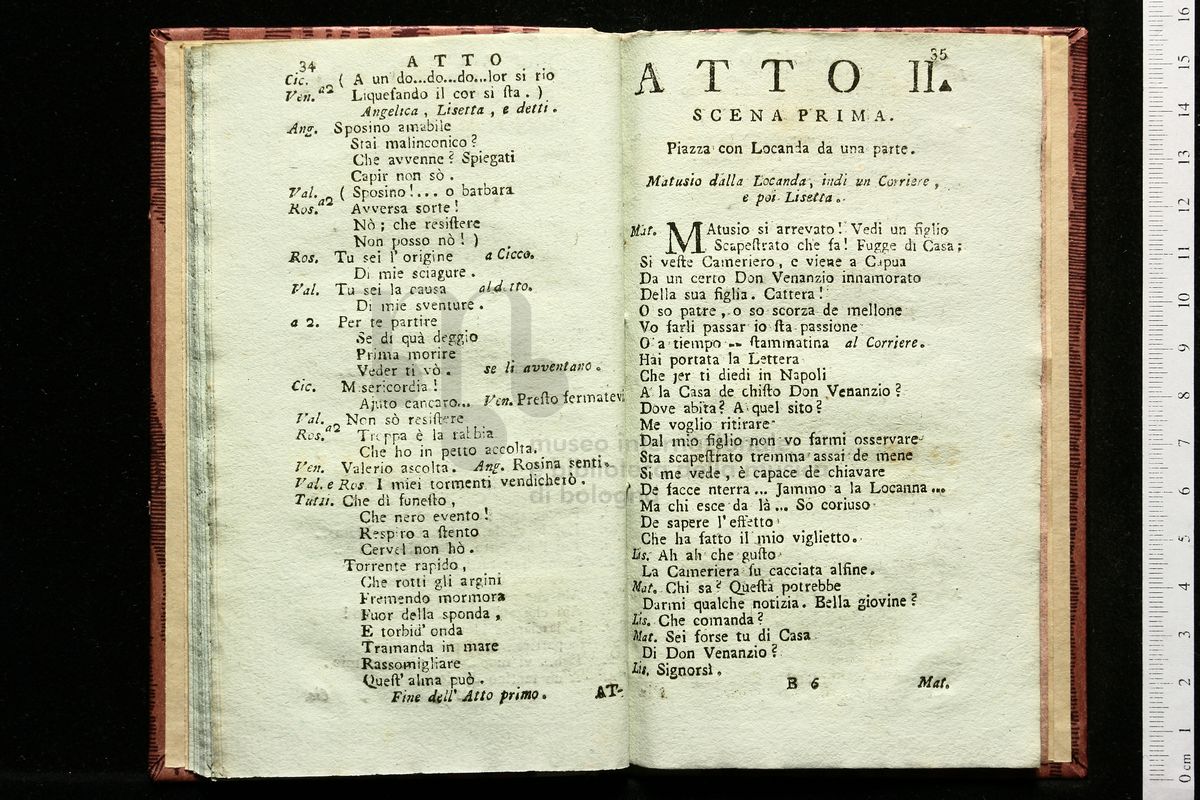 34
ATTO
Cic. ( A un do...do...do...lor si rio
Ven. a2 Liquefando il cor si sta . )
Angelica , Lisetta , e detti .
Ang. Sposino amabile
Stai malinconico ?
Che avvenne ? Spiegati
Capir non sò .
Val. ( Sposino !... o barbara
Ros. a2 Avversa sorte !
Nò ; che resistere
Non posso nò ! )
Ros. Tu sei l' origine a Cicco.
Di mie sciagure .
Val. Tu sei la causa al detto.
Di mie sventure .
a 2. Per te partire
Se di quà deggio
Prima morire
Veder ti vò . se li avventano .
Cic. Misericordia !
Ajuto cancaro... Ven. Presto fermatevi
Val. Non sò resistere
Ros. a2 Troppa è la rabbia
Che ho in petto accolta.
Ven. Valerio ascolta . Ang. Rosina senti.
Val. e Ros. I miei tormenti vendicherò .
Tutti. Che dì funesto ,
Che nero evento !
Respiro a stento
Cervel non hò .
Torrente rapido ,
Che rotti gli argini
Fremendo mormora
Fuor della sponda ,
E torbid' onda
Tramanda in mare
Rassomigliare
Quest' alma può .
Fine dell' Atto primo . AT-
35
ATTO II.
SCENA PRIMA.
Piazza con Locanda da una parte.
Matusio dalla Locanda, indi un Corriere ,
e poi Lisetta .
Mat. MAtusio si arrevato! Vedi un figlio
Scapestrato che fa! Fugge di Casa;
Si veste Cameriero, e viene a Capua
Da un certo Don Venanzio innamorato
Della sua figlia. Cattera!
O so patre, o so scorza de mellone
Vo farli passar io sta passione
O a tiempo -- stammatina al Corriere.
Hai portata la Lettera
Che jer ti diedi in Napoli
A la Casa de chisto Don Venanzio ?
Dove abita? A quel sito?
Me voglio ritirare
Dal mio figlio non vo farmi osservare
Sta scapestrato tremma assai de mene
Si me vede, è capace de chiavare
De facce nterra... Jammo a la Locanna...
Ma chi esce da là... So coriuso
De sapere l'effetto
Che ha fatto il mio viglietto.
Lis. Ah ah che gusto
La Cameriera fu cacciata alfine.
Mat. Chi sa? Questa potrebbe
Darmi qualche notizia. Bella giovine ?
Lis. Che comanda ?
Mat. Sei forse tu di Casa
Di Don Venanzio ?
Lis. Signorsì .
B 6 Mat.